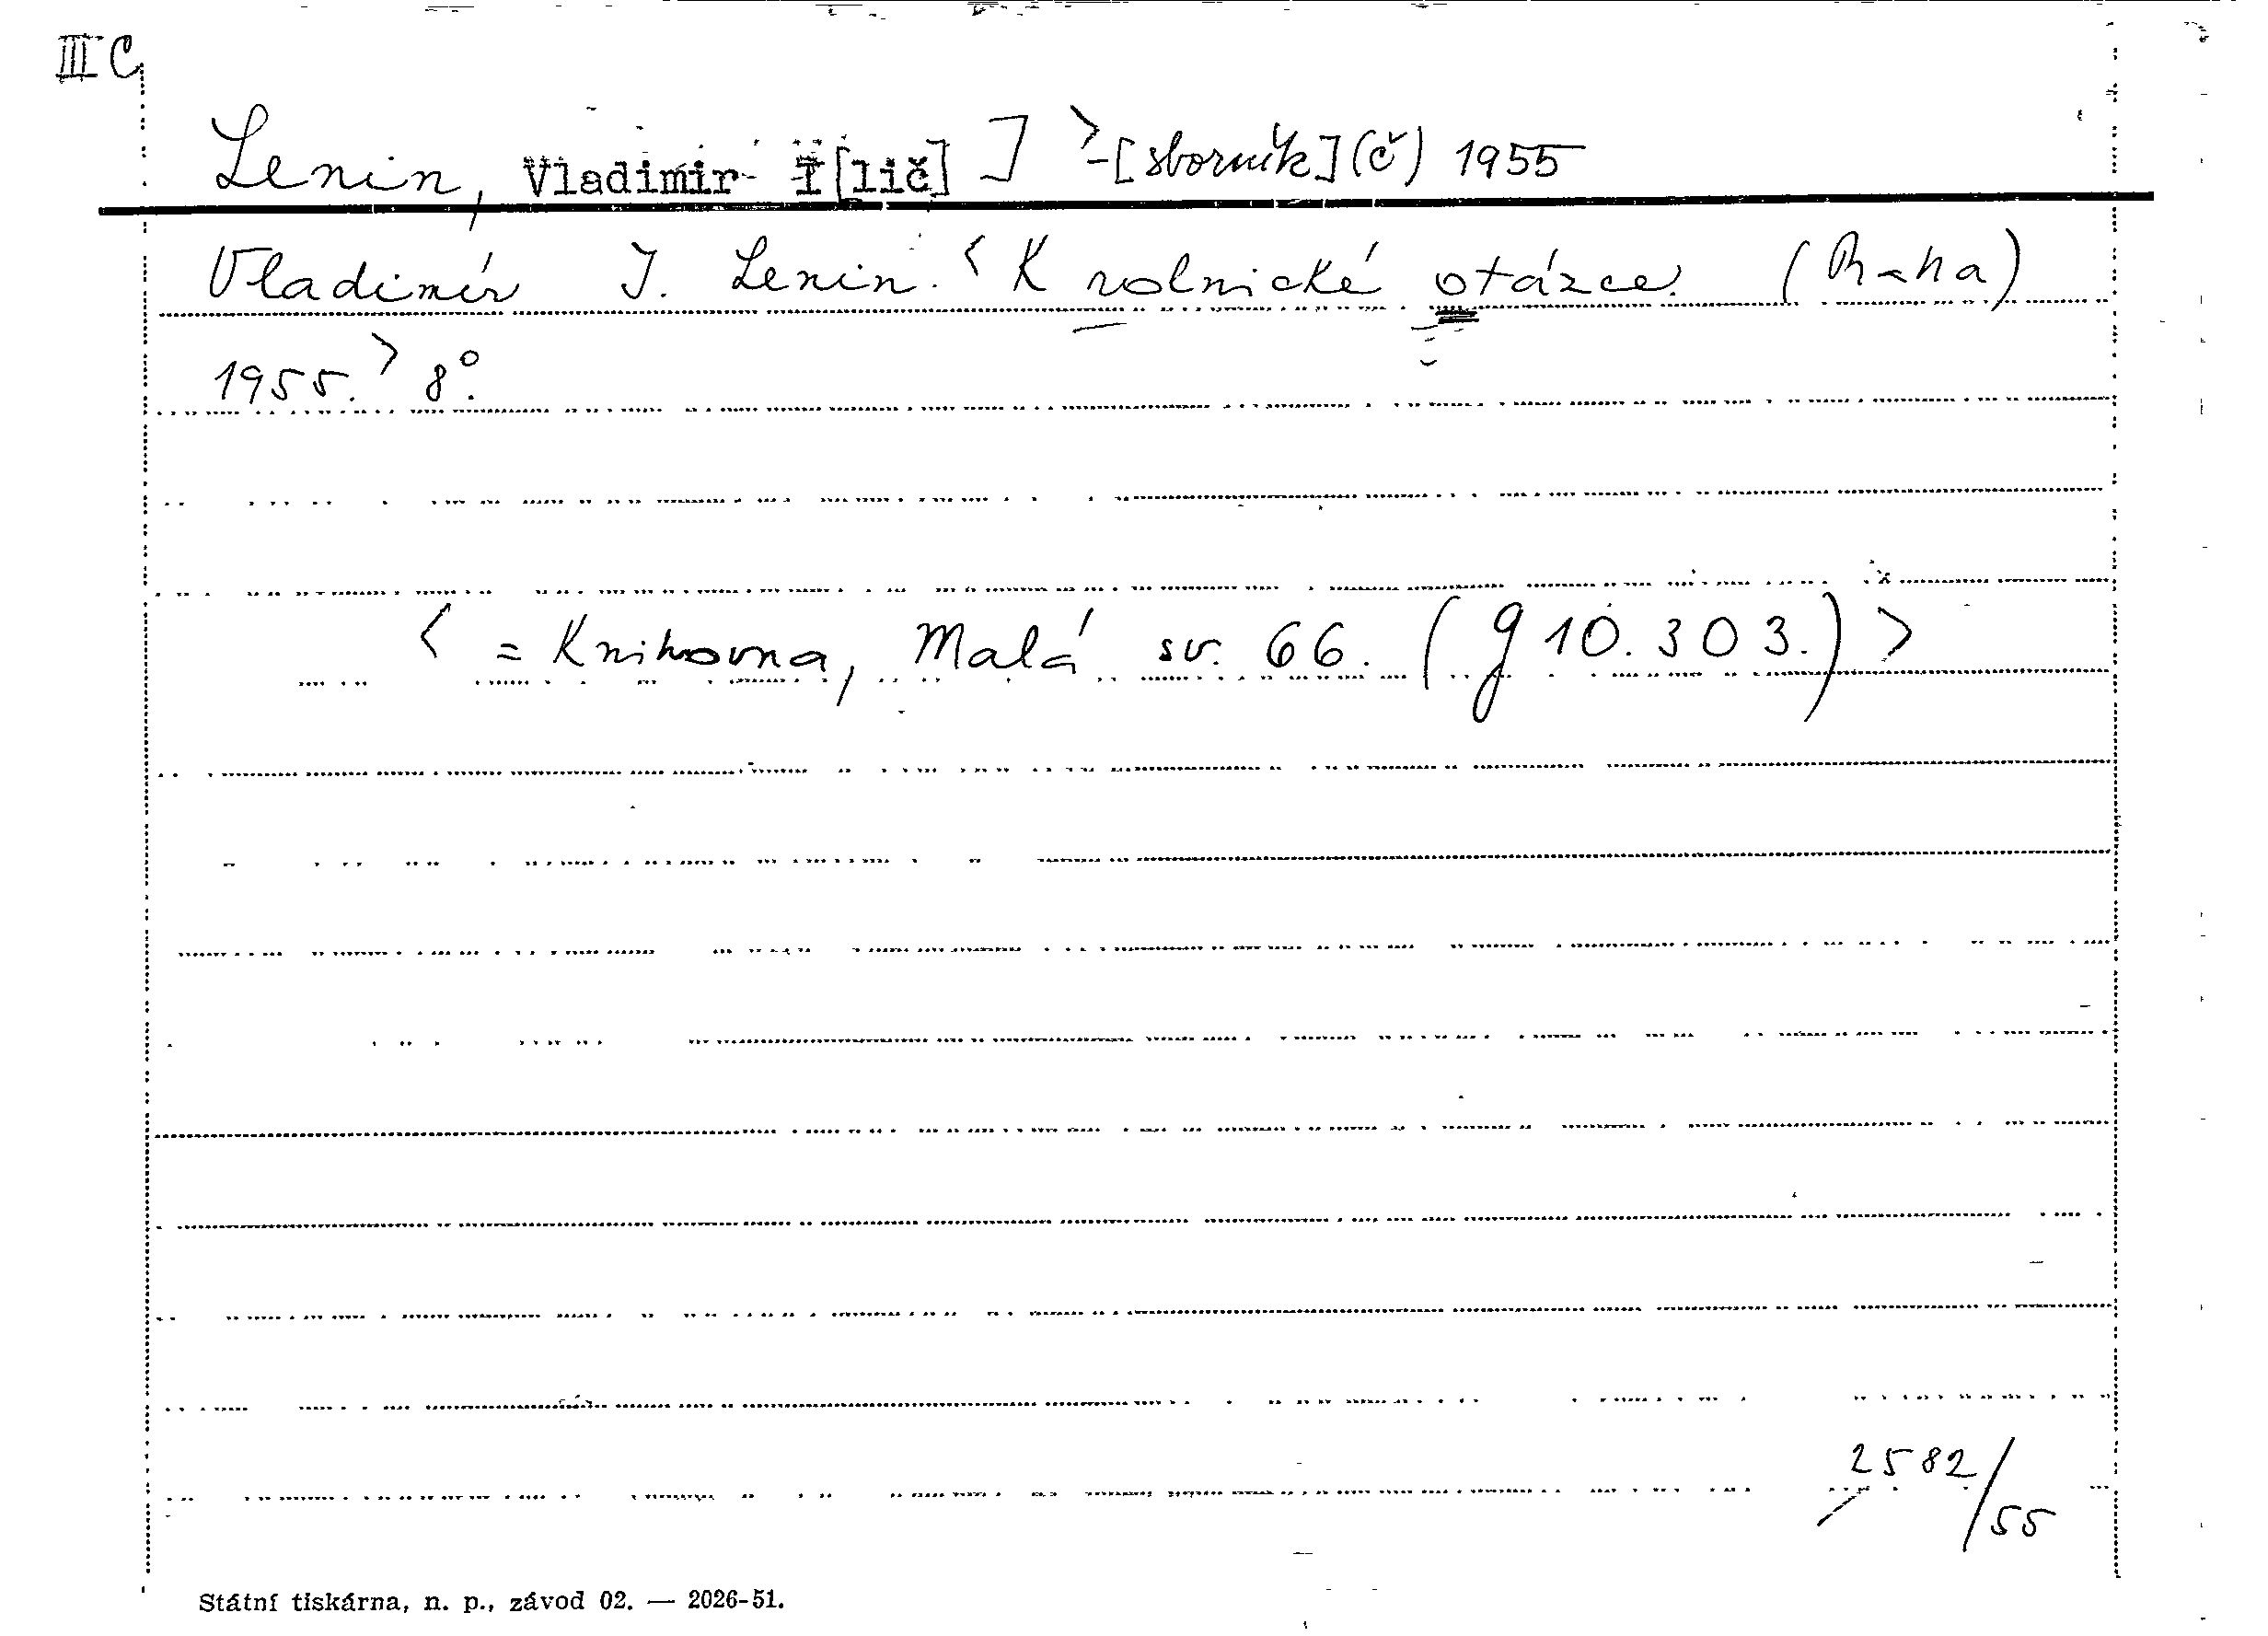 III C
Lenin, Vladimir I[lič] ] > -[sborník] (č) 1955
Vladimír I. Lenin. < K rolnické otázce. (Praha)
1955. > 8°.
< = Knihovna, Malá sv. 66. (g 10.303.) >
2582/55
Státní tiskárna, n. p., závod 02. — 2026-51.